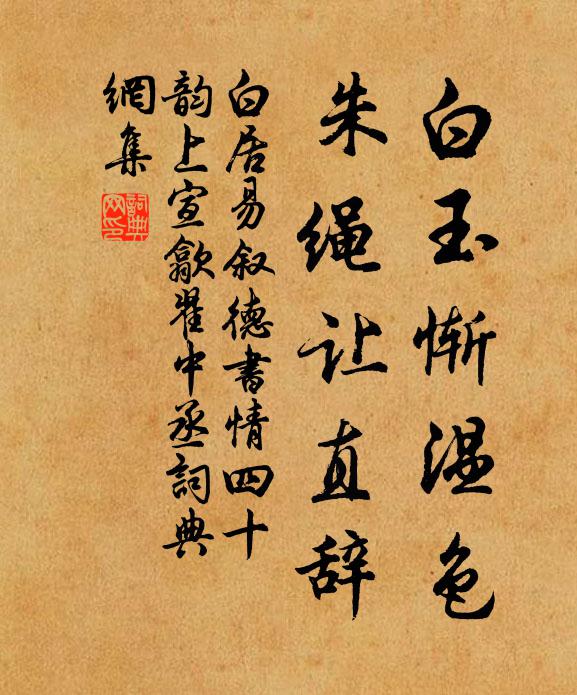 白玉惭温色
朱绳让直辞
白居易叙德書情四十
韵上宣歙翟中丞詞典
網集
詞典
网印